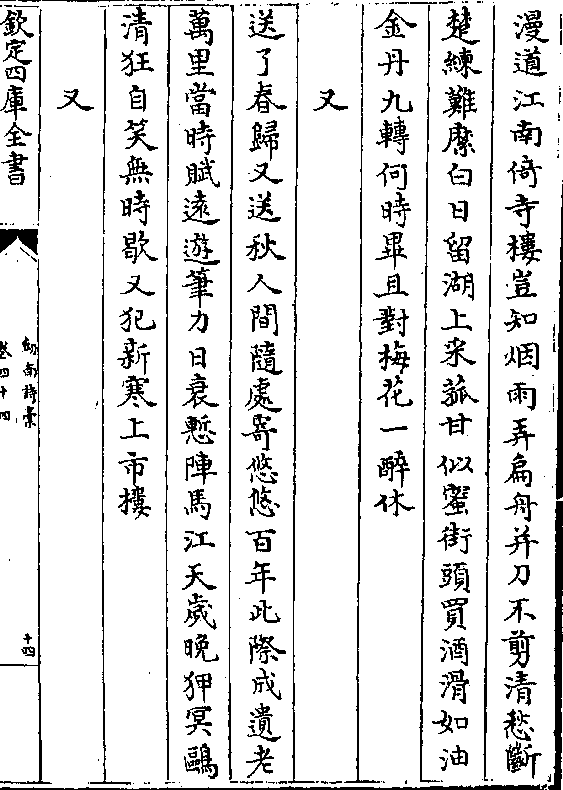 漫道江南倚寺樓豈知烟雨弄扁舟并刀不剪清愁斷
楚練難縻白日留湖上采菰甘似蜜街頭買酒滑如油
金丹九轉何時畢且對梅花一醉休
又
送了春歸又送秋人間隨處寄悠悠百年此際成遺老
萬里當時賦遠遊筆力日衰慙陣馬江天歲晚狎冥鷗
清狂自笑無時歇又犯新寒上市樓
又
欽定四庫全書
劍南詩稾
卷四十四
十四